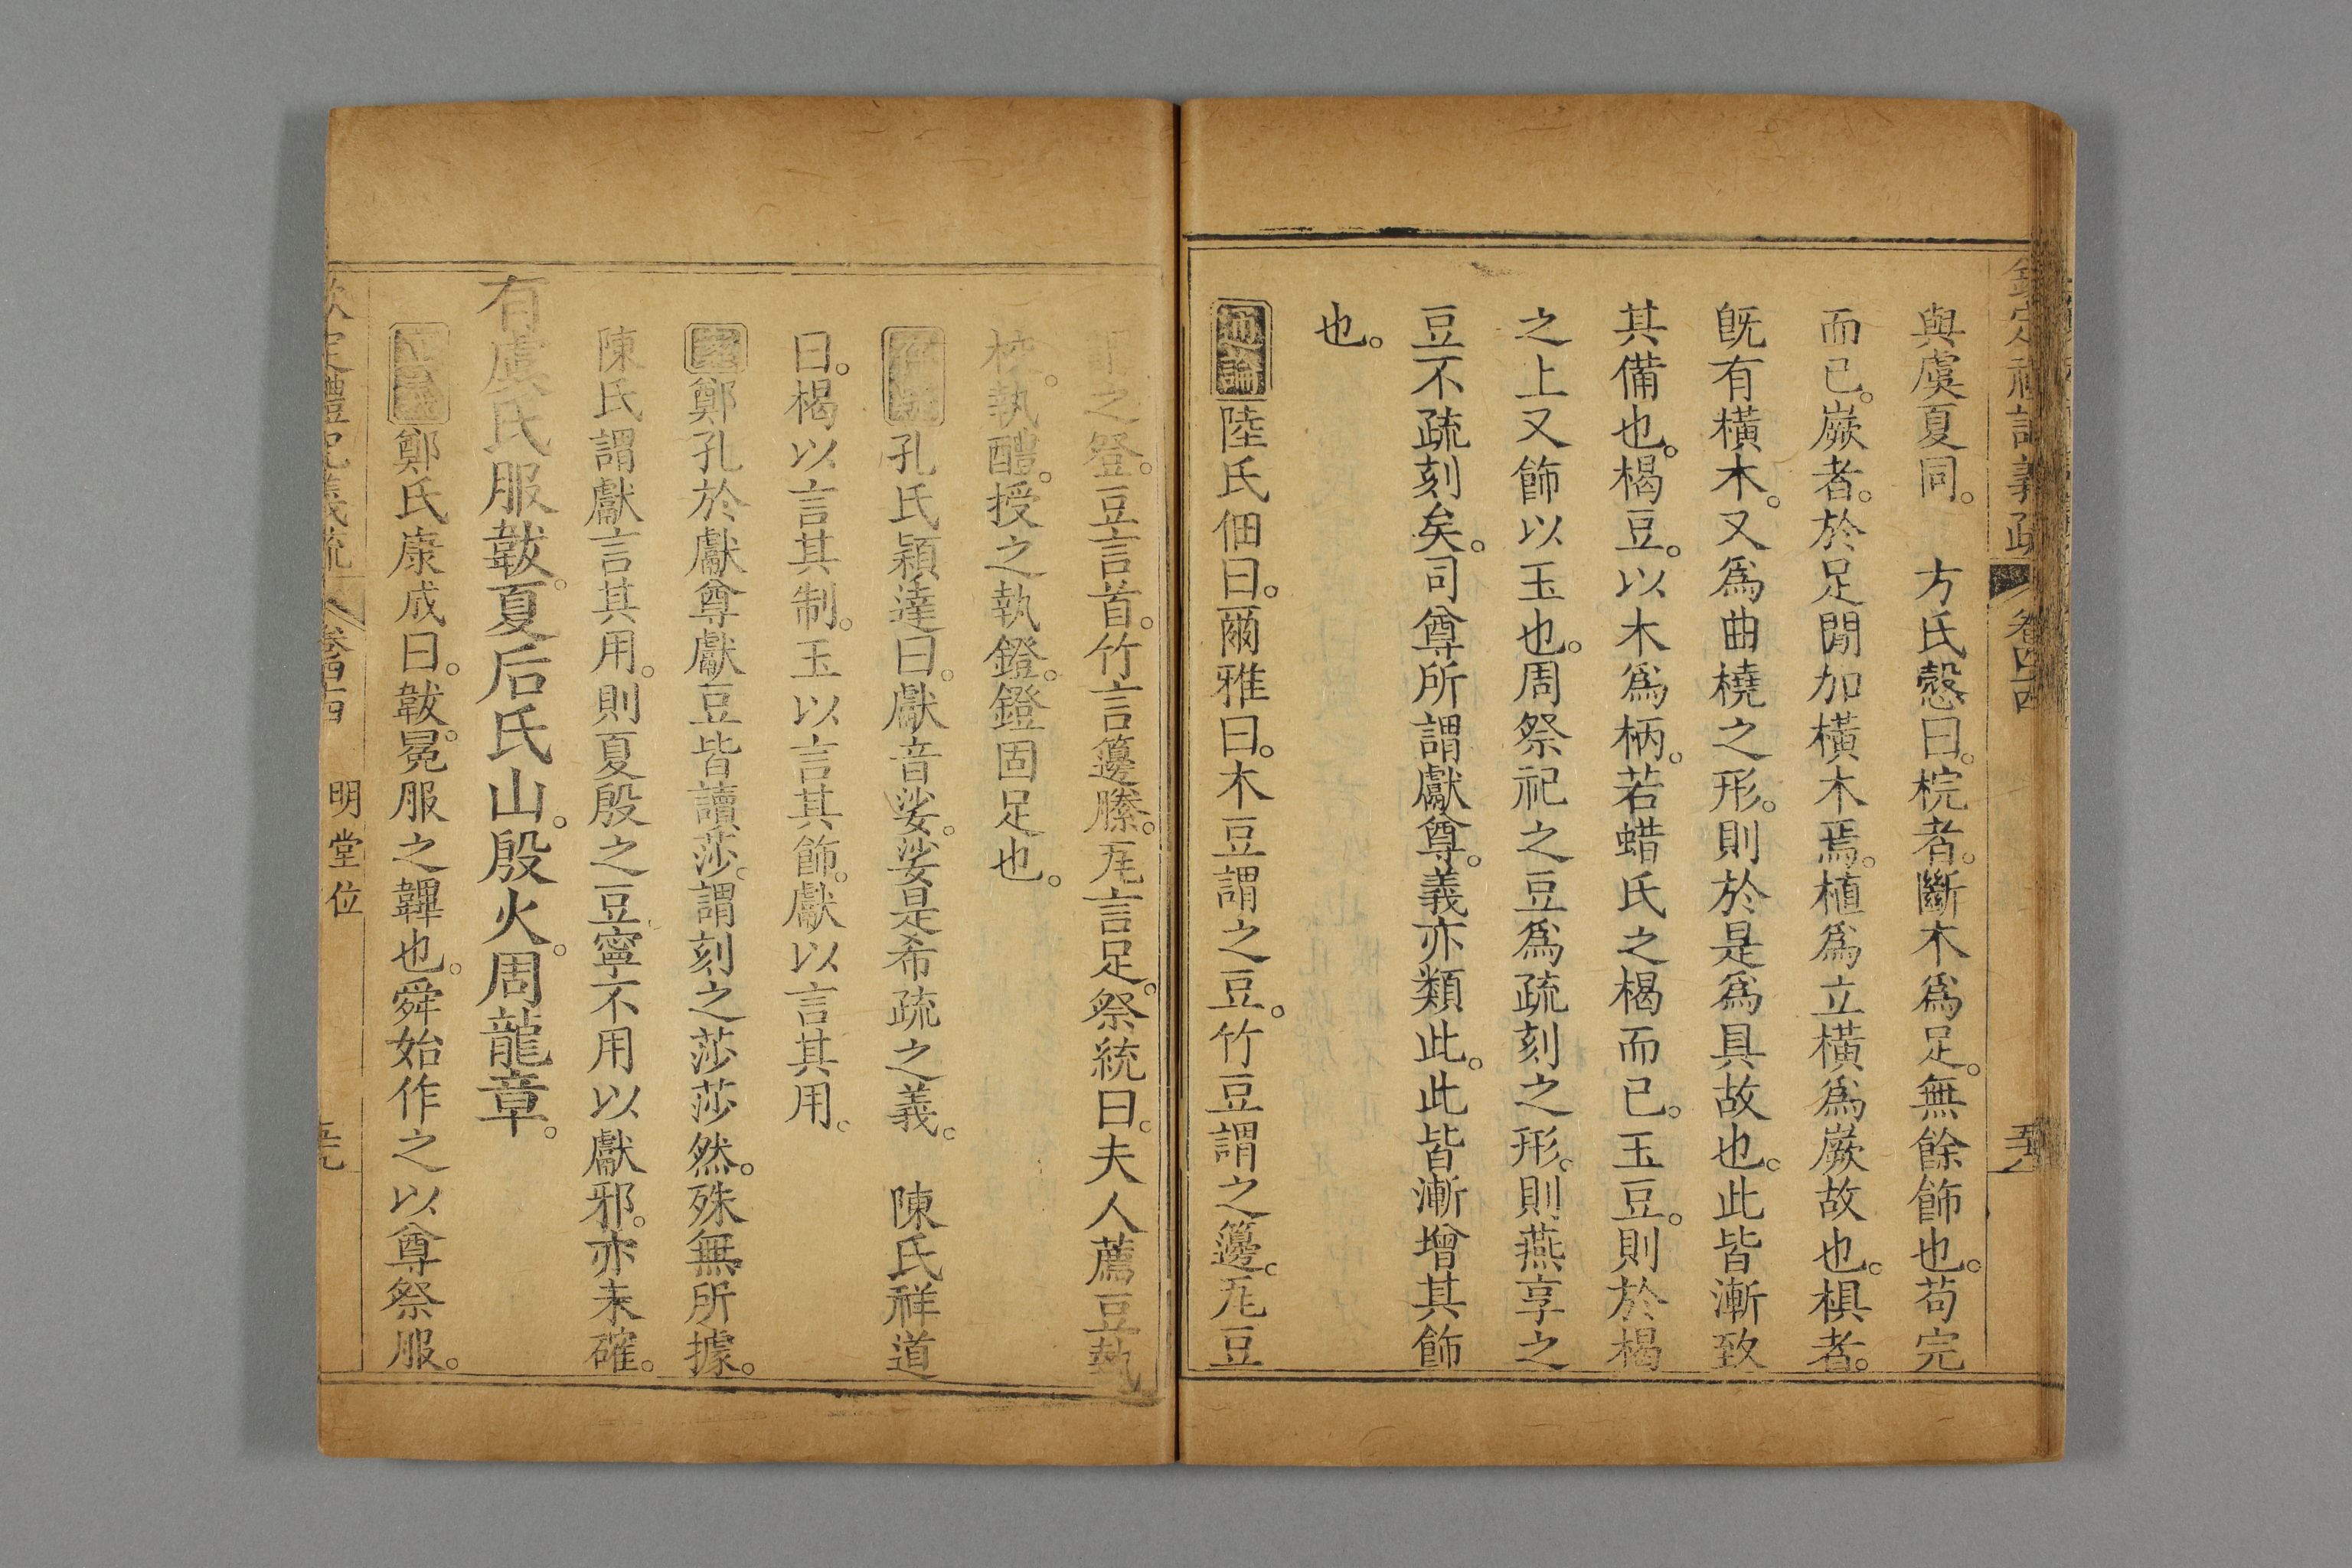 欽定禮記義疏 卷四四 五六
與虞夏同。　方氏慤曰。梡者。斷木爲足。無餘飾也。苟完
而已。嶡者。於足閒加橫木焉。植爲立橫爲嶡故也。椇者。
旣有橫木。又爲曲橈之形。則於是爲具故也。此皆漸致
其備也。楬豆。以木爲柄。若蜡氏之楬而已。玉豆。則於楬
之上又飾以玉也。周祭祀之豆爲疏刻之形。則燕享之
豆不疏刻矣。司尊所謂獻尊。義亦類此。此皆漸增其飾
也。
通論陸氏佃曰。爾雅曰。木豆謂之豆。竹豆謂之籩。瓦豆
謂之登。豆言首。竹言籩縢。瓦言足。祭統曰。夫人薦豆執
校。執醴。授之執鐙。鐙固足也。
孔氏穎達曰。獻音娑。娑是希疏之義。　陳氏祥道
曰。楬以言其制。玉以言其飾。獻以言其用。
案鄭孔於獻尊獻豆皆讀莎。謂刻之莎莎然。殊無所據。
陳氏謂獻言其用。則夏殷之豆寧不用以獻邪。亦未確。
有虞氏服韍。夏后氏山。殷火。周龍章。
正義鄭氏康成曰。韍。冕服之韠也。舜始作之以尊祭服。
欽定禮記義疏 卷四四 明堂位